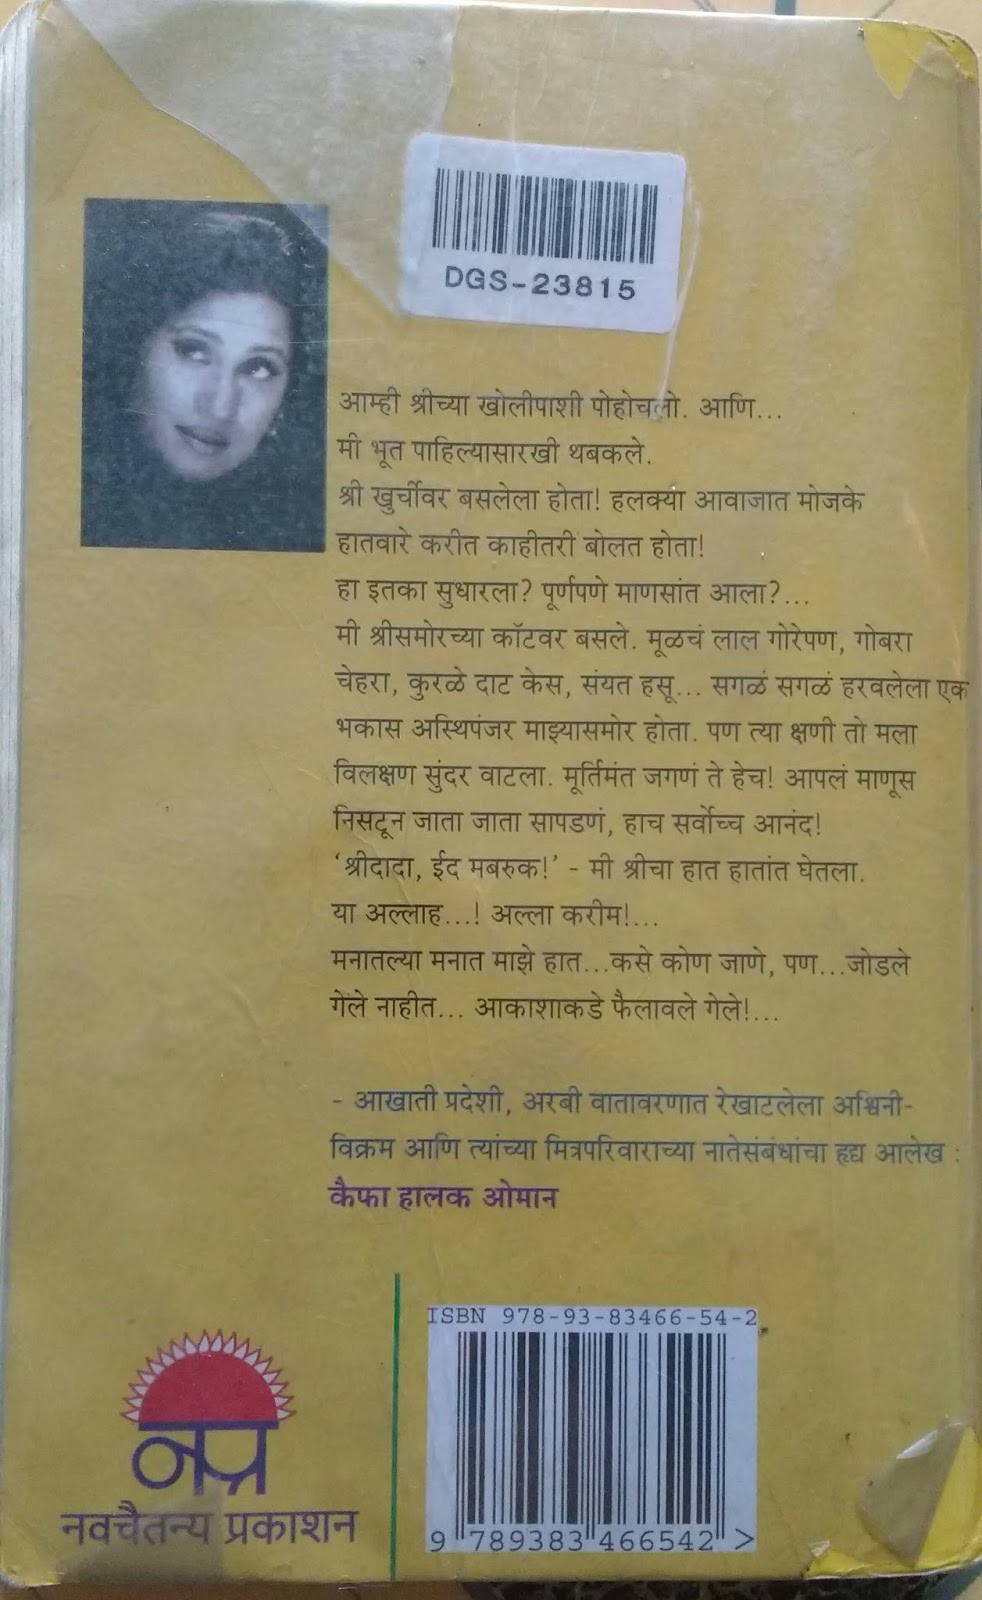 DGS-23815
आम्ही श्रीच्या खोलीपाशी पोहोचलो. आणि...
मी भूत पाहिल्यासारखी थबकले.
श्री खुर्चीवर बसलेला होता! हलक्या आवाजात मोजके
हातवारे करीत काहीतरी बोलत होता!
हा इतका सुधारला? पूर्णपणे माणसांत आला?...
मी श्रीसमोरच्या कॉटवर बसले. मूळचं लाल गोरेपण, गोबरा
चेहरा, कुरळे दाट केस, संयत हसू... सगळं सगळं हरवलेला एक
भकास अस्थिपंजर माझ्यासमोर होता. पण त्या क्षणी तो मला
विलक्षण सुंदर वाटला. मूर्तिमंत जगणं ते हेच! आपलं माणूस
निसटून जाता जाता सापडणं, हाच सर्वोच्च आनंद!
'श्रीदादा, ईद मबरुक!' - मी श्रीचा हात हातांत घेतला.
या अल्लाह...! अल्ला करीम!...
मनातल्या मनात माझे हात...कसे कोण जाणे, पण...जोडले
गेले नाहीत... आकाशाकडे फैलावले गेले!...
- आखाती प्रदेशी, अरबी वातावरणात रेखाटलेला अश्विनी-
विक्रम आणि त्यांच्या मित्रपरिवाराच्या नातेसंबंधांचा हृद्य आलेख :
कैफा हालक ओमान
ISBN 978-93-83466-54-2
नप्र
नवचैतन्य प्रकाशन
9 789383 466542 >